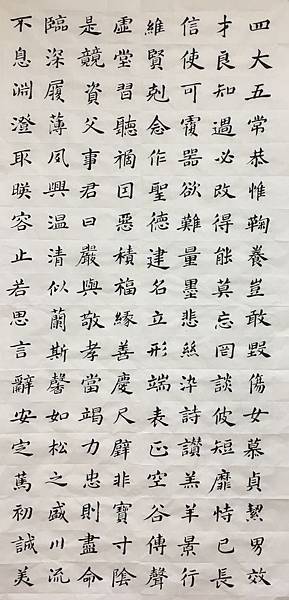 四大五常恭惟鞠養豈敢毀傷女慕貞絜男效
才良知過必改得能莫忘罔談彼短靡恃己長
信使可覆器欲難量墨悲絲染詩讚羔羊景行
維賢剋念作聖德建名立形端表正空谷傳聲
虛堂習聽禍因惡積福緣善慶尺璧非寶寸陰
是競資父事君曰嚴與敬孝當竭力忠則盡命
臨深履薄夙興温清似蘭斯馨如松之盛川流
不息淵澄取暎容止若思言辭安定篤初誠美